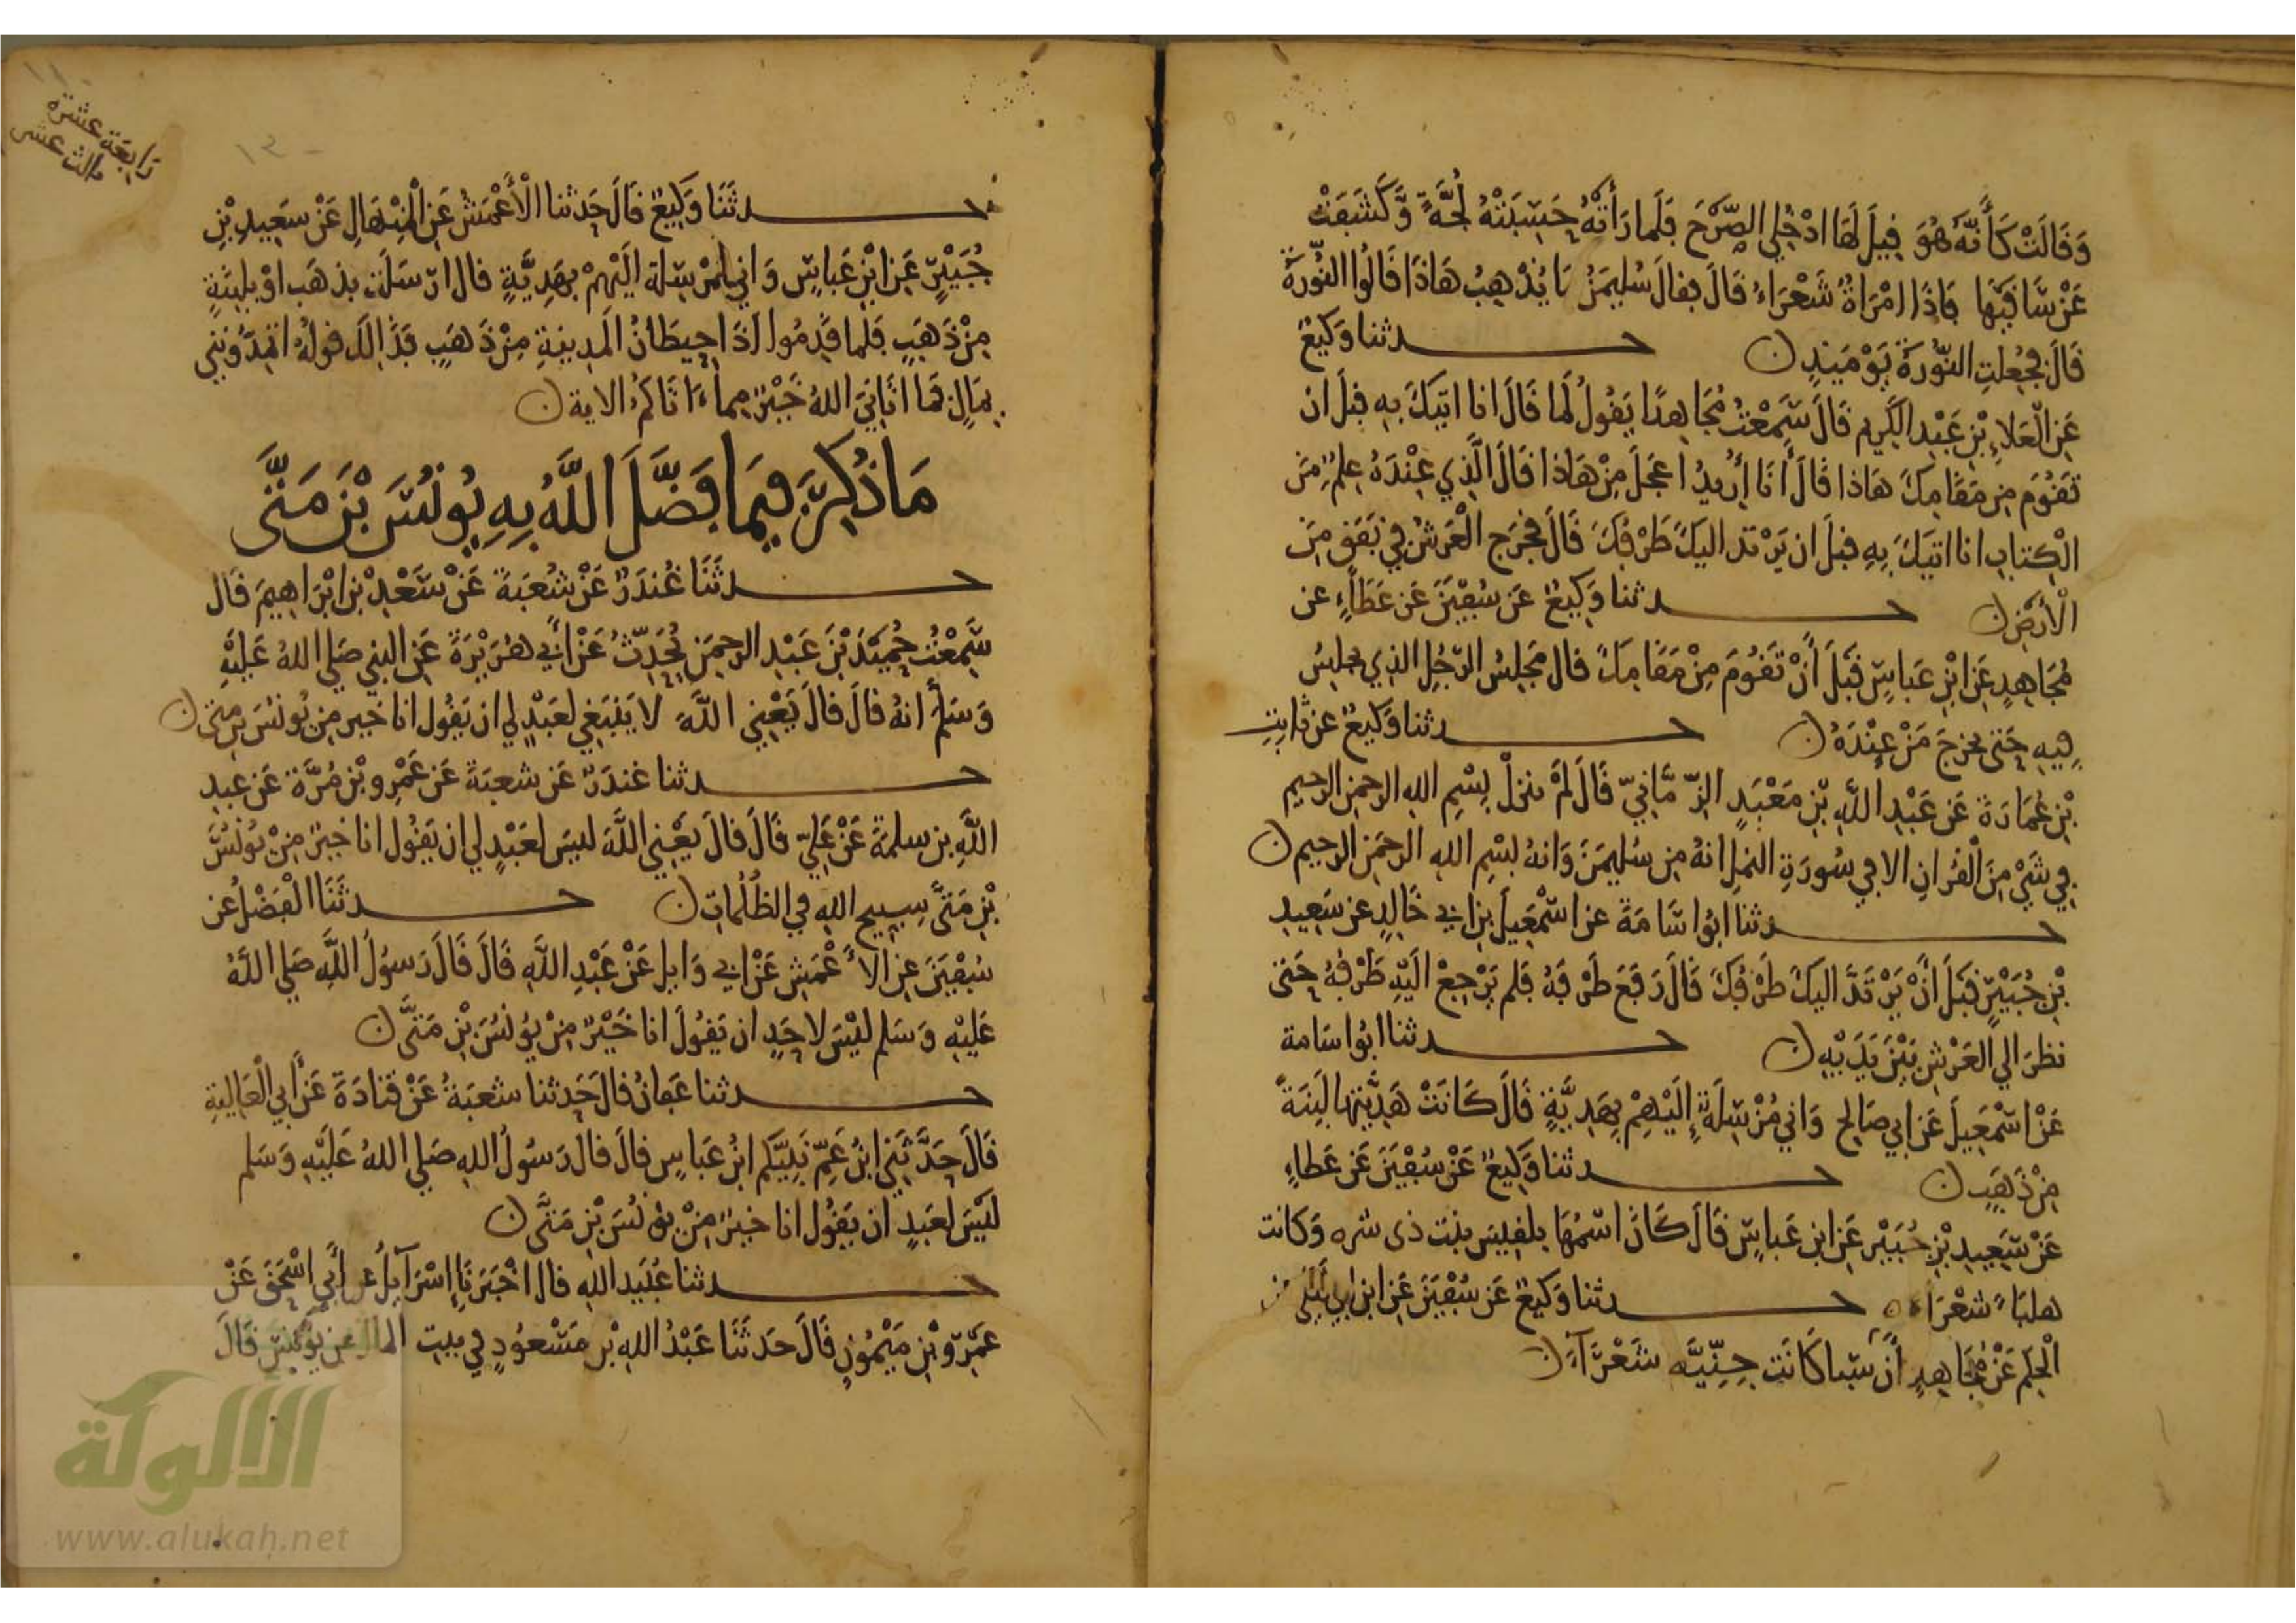 وَقَالَتْ كَأَنَّهُ هُوَ قِيلَ لَهَا ادْخُلِي الصَّرْحَ فَلَمَا رَأَتْهُ حَسِبَتْهُ لُجَّةً وَّكَشَفَتْ
عَنْ سَّاقَيْهَا فَإِذَا امْرَأةٌ شَعْرَاءُ قَالَ فقالَ سُلَيمَنُ مَا يُذْهِبُ هَاذَا قَالُوا النُّورَةُ
قَالَ فجُعِلَتِ النُّورَةُ يَوْمَئِذٍ ن حــدثنا وَكِيعٌ
عَنِ الْعَلاءِ بْنِ عَبْدِ الكَرِيم قَالَ سَّمِعْتُ مُجَاهِدًا يَقُولُ لَمَا قَالَ انا اتِيكَ بِهِ قبلَ ان
تَقُوْمَ مِن مَقَامِكَ هَاذا قَالَ أَنَا أُرِيدُ اعجَلَ مِنْ هَاذا قَالَ الَّذِي عِنْدَهُ عِلمٌ مِنَ
الْكِتابِ انا اتيكَ بِهِ قبلَ ان يَرْتد اليكَ طَرْفُكَ قَالَ فخَرَج الْعَرشُ في نَفَقٍ مِنَ
الْأَرْضِ ن حــدثنا وَكِيعٌ عَن سُفْيَنَ عَن عَطَاءٍ عن
مُجَاهِدٍ عَنِ ابْنِ عَباسٍ قَبْلَ أَنْ تَقُوْمَ مِنْ مَقَامِكَ قال مَجْلِسُ الرَّجُلِ الذِي يجلِسُ
فِيهِ حَتى يخرجَ مَنْ عِنْدَهُ ن حــدثنا وَكِيعٌ عن ثابتِ
بْنِ عُمَارَةَ عَن عَبْدِ اللَّهِ بْنِ مَعْبَدٍ الزِّمَّانِيّ قَالَ لَمْ تنزلْ بِسْمِ اللهِ الرحمَنِ الرحِيم
فِي شَيْءٍ مِنَ الْقُرانِ الا فِي سُورَةِ النملِ انهُ مِن سُليمَنَ وَانهُ بسْمِ اللهِ الرحمَنِ الرحيم ن
حــدثنا ابُو اسَامَةَ عن اسْمَعِيلَ بنِ ابي خَالِدٍ عن سَعِيدِ
بْنِ جُبَيْرٍ قَبلَ أَنْ يَرْتَدَّ اليكَ طَرْفُكَ قَالَ رَفَعَ طَرْفَهُ فَلم يَرْجِعْ الَيْهِ طَرْفُهُ حَتى
نظرَ الي الْعَرْشِ بَيْنَ يَدَيْهِ ن حــدثنا ابُو اسَامة
عَنْ اسْمَعِيلَ عَن ابِي صَالِحٍ وَانِي مُرْسِلَةٌ إِلَيْهِمْ بِهَدِيَّةٍ قَالَ كَانَتْ هَدِيَّتُهَا لَبِنَةً
مِنْ ذَهَبٍ ن حــدثنا وَكِيعٌ عَنْ سُفْيَنَ عَن عَطاءِ
عَنْ سَعِيدِ بْنِ جُبَيْرٍ عَنِ ابنِ عَباسٍ قَالَ كَانَ اسْمُهَا بلقِيسَ بنت ذى شره وَكانت
هلبَاءَ شَعْرَاءَ ن حــدثنا وَكِيعٌ عَن سُفْيَنَ عَنِ ابنِ ابِي لَيْلَى عن
الْحكَم عَنْ مُجَاهِدٍ أَنَّ سَبا كَانَت جِنِّيَّه شَعْرَآءَ ن
رَابِعَة عشرة
ثالث عشر
حــدثَنَا وَكِيعٌ قَالَ حَدثنا الْأَعْمَشُ عَنِ الْمِنْهَالِ عَنْ سَعِيدِ بْنِ
جُبَيْرٍ عَنِ ابْنِ عَباسٍ وَانِي مُرْسِلَة الَيْهِمْ بِهَدِيَّةٍ قال ارْسَلَتْ بذهَب اوْ بِلَبِنَةٍ
مِنْ ذَهَبٍ فَلما قَدِمُوا اذَا حِيطَانُ الْمَدِينةِ مِنْ ذَهَبٍ فَذَالِكَ قولُهُ اتُمِدُّونَنِي
بِمَالٍ فمَا اتَانِيَ اللهُ خَيْرٌ مِما ءَاتَاكُمُ الاية ن
مَا ذُكِرَ فِيمَا فَضَّلَ اللَّهُ بِهِ يُونُسَ بْنَ مَتَّى
حــدثَنَا غُندَرٌ عَنْ شُعْبَةَ عَنْ سَعْدِ بْنِ ابْرَاهِيمَ قَال
سَّمِعْتُ حُمَيْدَ بْنَ عَبْدِ الرحمَنِ يُحَدِّثُ عَنْ أَبِي هُرَيْرَةَ عَنِ النبي صَلي اللهُ عَلَيْهِ
وَسَلَّمَ انهُ قالَ قالَ يَعْنِي اللَّهَ لَا يَنْبَغِي لعَبْدٍ لِي ان يَقُول انا خير مِن يُونُسَ بن متى ن
حــدثنا غندَرٌ عَن شعبَةَ عَن عَمْرِو بْنِ مُرَّةَ عَن عبدِ
اللَّهِ بن سلِمَةَ عَنْ عَلِيٍّ قَالَ قالَ يَعْنِي اللَّهَ ليسَ لعَبْدٍ لِي ان يَقُول انا خَيرٌ مِنْ يُونُسَ
بْنِ مَتَّى سبيح اللهِ فِي الظُلُمَاتِ ن حــدثَنَا الْفَضْلُ عن
سُفْيَنَ عنِ الاَعْمَشِ عَنْ ابي وَايِل عَنْ عَبْدِ اللَّهِ قَالَ قَالَ رَسُولُ اللَّهِ صَلي اللَّهُ
عَلَيْهِ وَسَلم ليْسَ لاحَدٍ ان يَقُولَ انا خَيْرٌ مِنْ يُونُسَ بْنِ مَتَّى ن
حــدثنا عَفانُ قالَ حَدثنا شعبَةُ عَنْ قتَادَةَ عَنْ أَبِي الْعَالِيةِ
قَالَ حَدَّثَنِي ابْنُ عَمِّ نَبِيِّكُم ابْنُ عَباسٍ قالَ قالَ رَسُولُ اللهِ صَلي اللهُ عَلَيْهِ وَسَلم
لَيْسَ لعَبدٍ ان يَقُول انا خيرٌ مِنْ يُونُسَ بْنِ مَتَّى ن
حــدثنا عُبَيد اللهِ قال اخْبَرَنَا إِسْرَآيلُ عن أَبِي اسْحَقَ عَنْ
عَمْرِو بْنِ مَيْمُونٍ قَالَ حَدثَنَا عَبْدُ اللهِ بْن مَسْعُودٍ فِي بيتِ المالِ عن يُونُسَ قَالَ
الألوكة
www.alukah.net